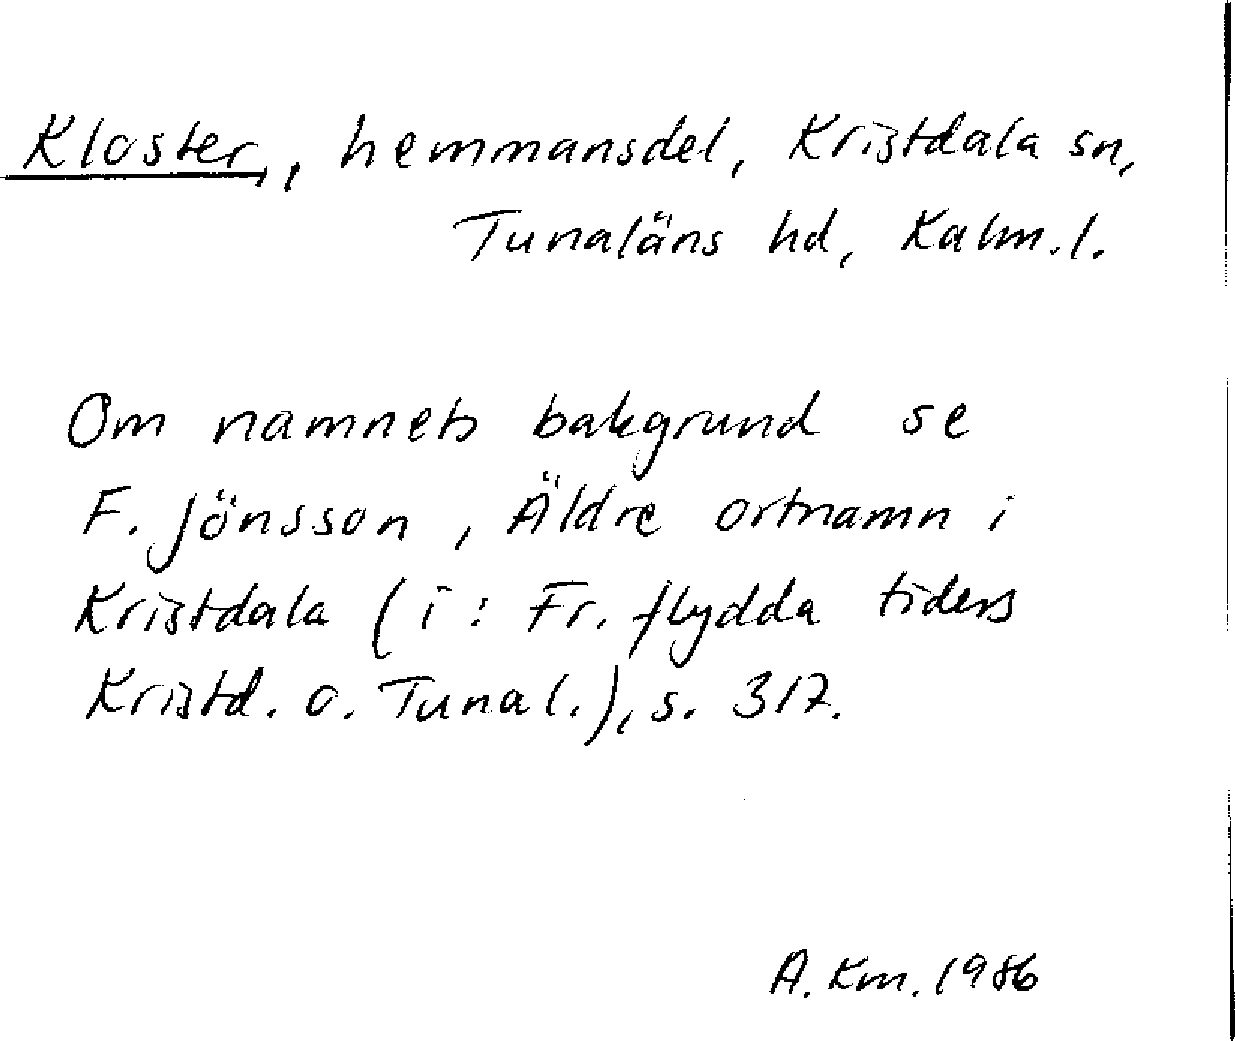 Kloster, hemmansdel, Kristdala sn,
Tunaläns hd, Kalm.l.
Om namnets bakgrund se
F. Jönsson, Äldre ortnamn i
Kristdala (i: Fr. flydda tiders
Kristd. o. Tunal.), s. 317.
A. Km. 1986